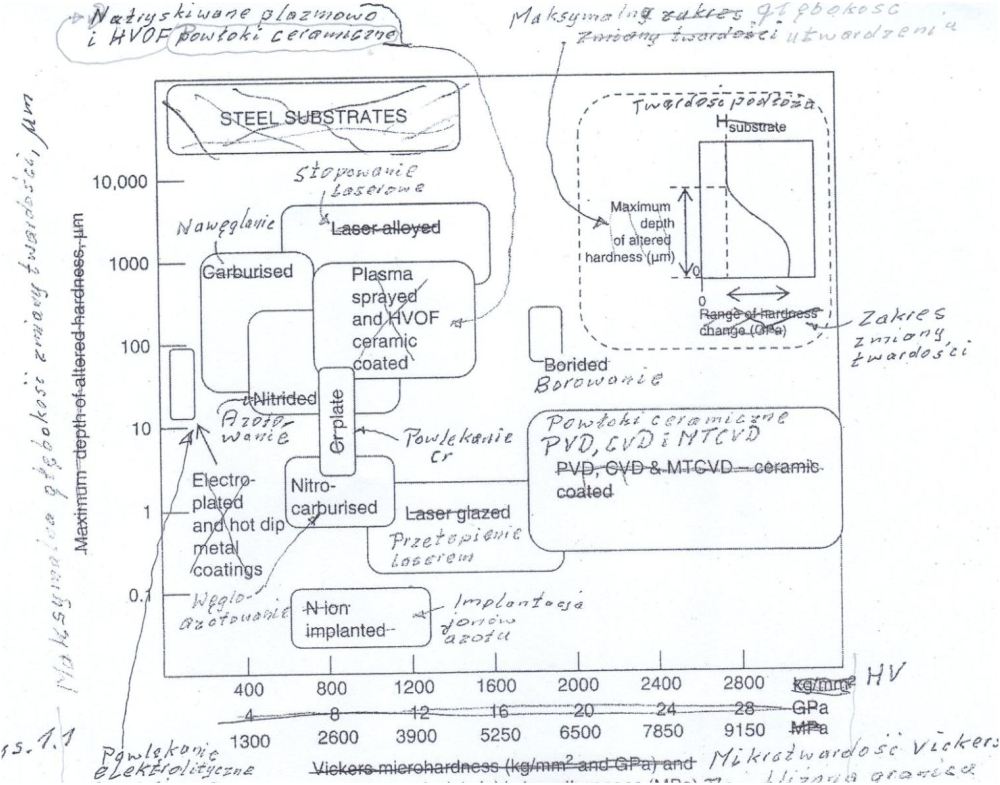 Natryskiwane plazmowo
i HVOF powłoki ceramiczne
Maksymalna zakres głębokość
zmiany twardości utwardzenia
STEEL SUBSTRATES
Twardość podłoża
H substrate
Maximum
depth
of altered
hardness (μm)
0
0
Range of hardness
change (GPa)
Zakres
zmiany
twardości
Maksymalna głębokość zmiany twardości, μm
Maximum depth of altered hardness, μm
10,000
1000
100
10
1
0.1
Stopowanie
Laserowe
Laser alloyed
Nawęglanie
Carburised
Plasma
sprayed
and HVOF
ceramic
coated
Borided
Borowanie
Nitrided
Azoto-
wanie
Cr plate
Powlekanie
cr
Powłoki ceramiczne
PVD, CVD i MTCVD
PVD, CVD & MTCVD – ceramic
coated
Electro-
plated
and hot dip
metal
coatings
Nitro-
carburised
Laser glazed
Przetopienie
Laserem
Węglo-
azotowanie
N ion
implanted
Implantacja
jonów
azotu
400 800 1200 1600 2000 2400 2800 kg/mm² HV
4 8 12 16 20 24 28 GPa
1300 2600 3900 5250 6500 7850 9150 MPa
ys. 1.1
Powlekanie
elektrolityczne
Vickers microhardness (kg/mm² and GPa) and
Mikrotwardość Vickers
granica